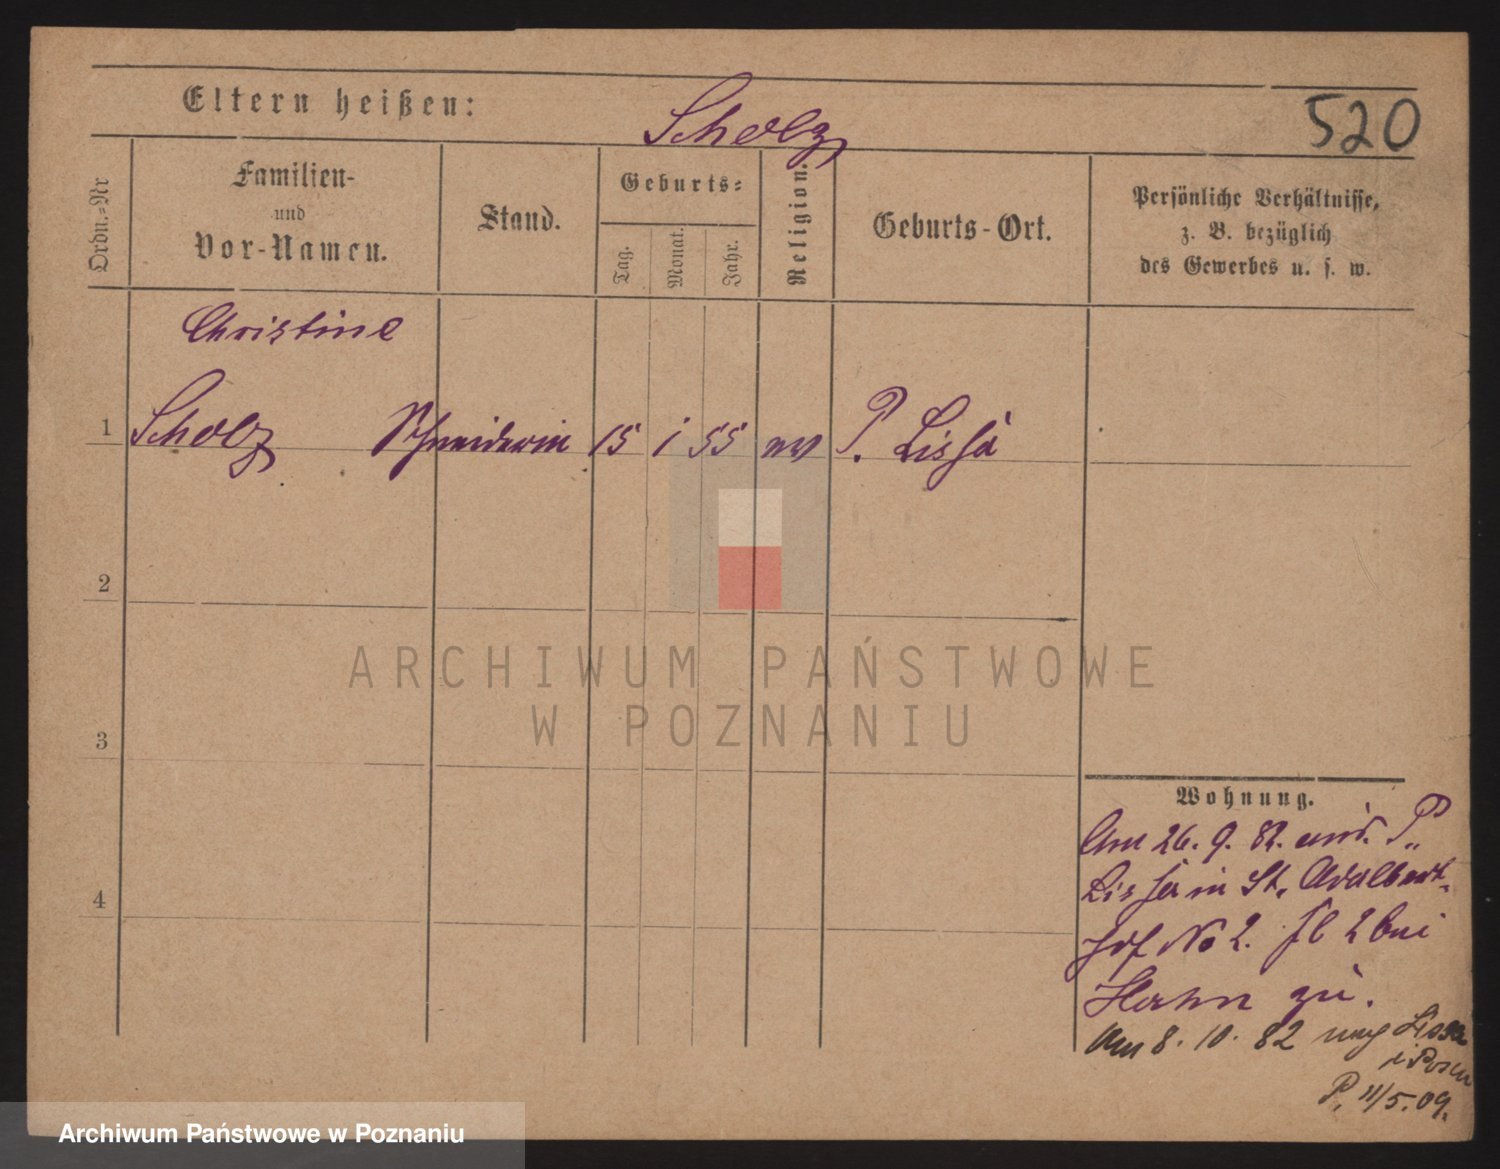 Eltern heißen: Scholz 520
Ordn.=Nr
Familien-
und
Vor-Namen.
Stand.
Geburts=
Tag.
Monat.
Jahr.
Religion.
Geburts-Ort.
Persönliche Verhältnisse,
z. B. bezüglich
des Gewerbes u. s. w.
Christine
1 Scholz Schneiderin 15 1 55 ev P. Lissa
2
3
4
Wohnung.
Am 26. 9. 82. P.
Lissa in St. Adalbert-
No 2. bei
Hahn zu.
Am 8. 10. 82 nach Lissa
i Posen
P. 11/5.09.
ARCHIWUM PAŃSTWOWE
W POZNANIU
Archiwum Państwowe w Poznaniu